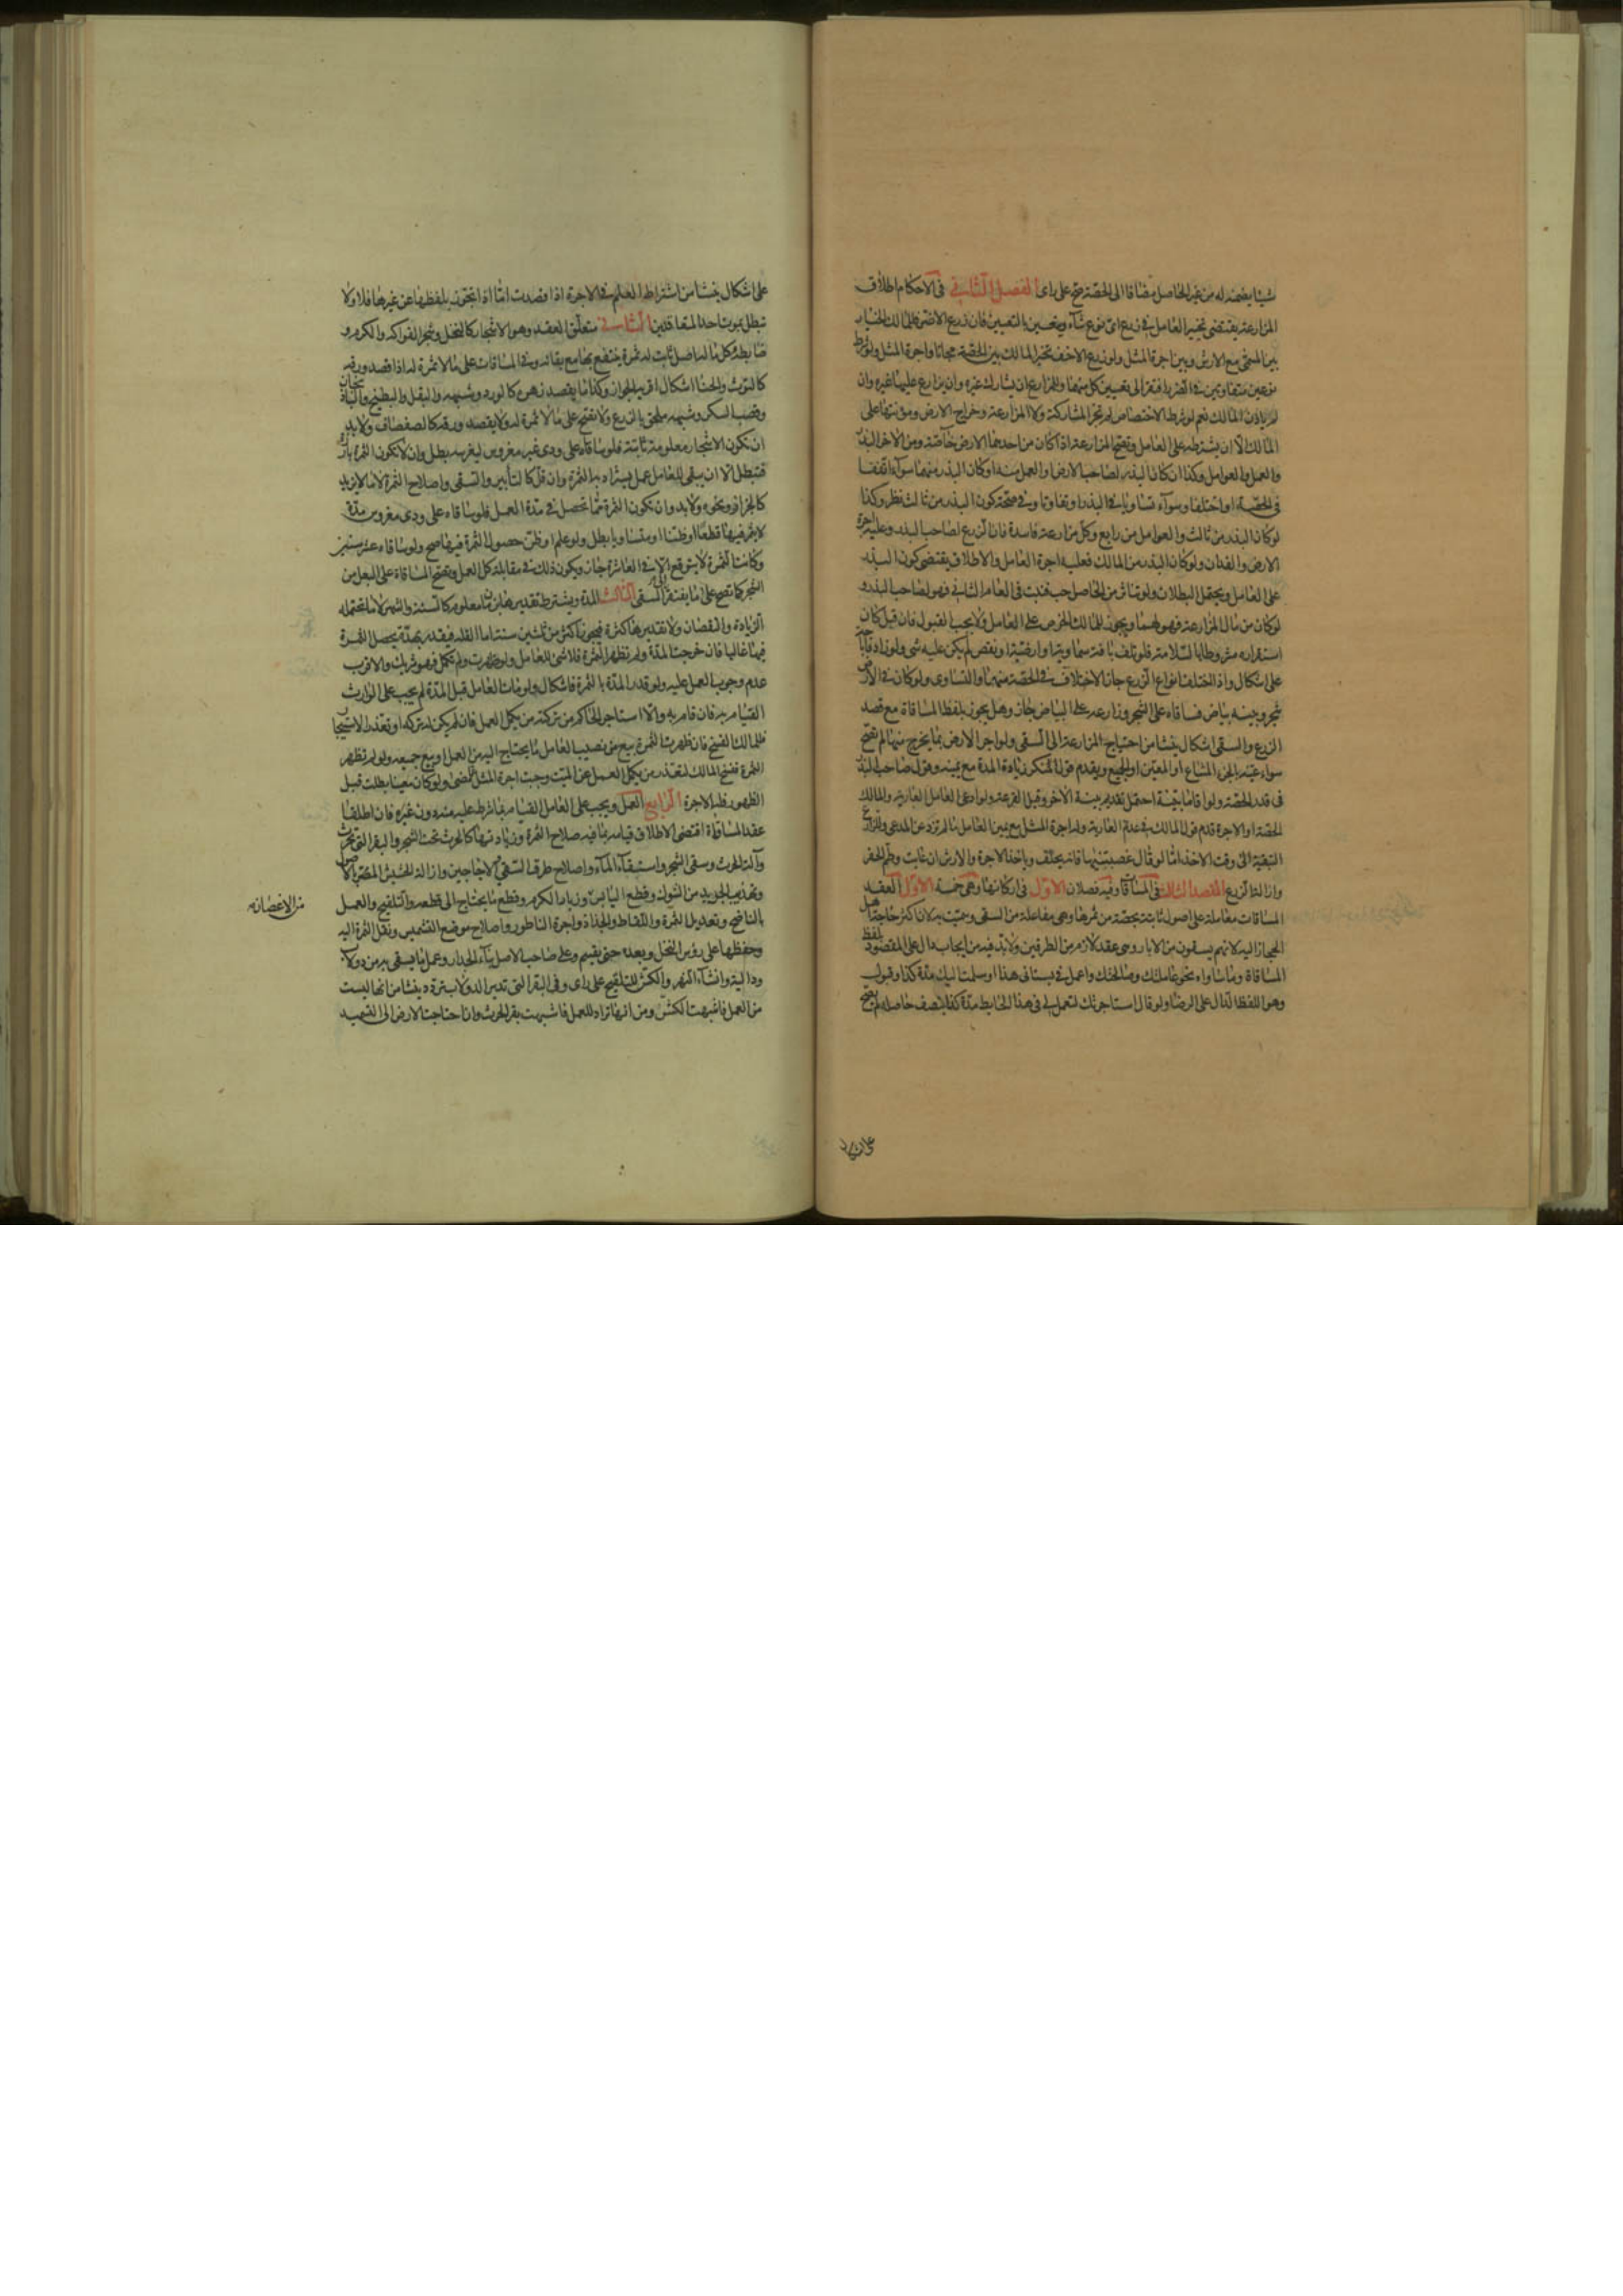 شيئا يضمنه له من غير الحاصل مضافا الى الحصة صح على راى الفصل الثانى فى الاحكام اطلاق
المزارعة يقتضى تخيير العامل فى زرع اى نوع شاء ويتعين بالتعيين فان زرع الاضر فللمالك الخيار
بين المسمى مع الارش وبين اجرة المثل ولو زرع الاخف تخير المالك بين الحصة مجانا واجرة المثل ولو شرط
نوعين متفاوتين فى الضرر افتقر الى تعيين كل منهما وللمزارع ان يشارك غيره وان يزارع عليها غيره وان
لم ياذن المالك نعم لو شرط الاختصاص لم تجز المشاركة ولا المزارعة وخراج الارض ومؤنتها على
المالك الا ان يشترطه على العامل وتصح المزارعة اذا كان من احدهما الارض خاصة ومن الاخر البذر
والعمل والعوامل وكذا ان كان البذر لصاحب الارض والعمل منه او كان البذر منهما سواء اتفقا
فى الحصة او اختلفا وسواء تساويا فى البذر او تفاوتا وفى صحة كون البذر من ثالث نظر وكذا
لو كان البذر من ثالث والعوامل من رابع وكل مزارعة فاسدة فان الزرع لصاحب البذر وعليه اجرة
الارض والفدان ولو كان البذر من المالك فعليه اجرة العامل والاطلاق يقتضى كون البذر
على العامل ويحتمل البطلان ولو تناثر من الحاصل حب فنبت فى العام الثانى فهو لصاحب البذر و
لو كان من مال المزارعة فهو لهما ويجوز للمالك الخرص على العامل ولا يجب القبول فان قبل كان
استقراره مشروطا بالسلامة فلو تلف بافة سماوية او ارضية او نقص لم يكن عليه شى ولو زاد فاباحة
على اشكال واذا اختلف انواع الزرع جاز الاختلاف فى الحصة منها والتساوى ولو كان فى الارض
شجر وبينه بياض فساقاه على الشجر وزارعه على البياض جاز وهل يجوز بلفظ المساقاة مع قصد
الزرع والسقى اشكال ينشا من احتياج المزارعة الى السقى ولو اجر الارض بما يخرج منها لم تصح
سواء عينه بالجزء المشاع او المعين او الجميع ويقدم قول منكر زيادة المدة مع يمينه وقول صاحب البذر
فى قدر الحصة ولو اقاما بينة احتمل تقديم بينة الاخر وقيل القرعة ولو ادعى العامل العارية والمالك
الحصة او الاجرة قدم قول المالك فى عدم العارية وله اجرة المثل مع يمين العامل ما لم تزد عن المدعى وللزارع
التبقية الى وقت الاخذ اما لو قال غصبتنيها فانه يحلف وياخذ الاجرة والارش ان عابت وطم الحفر
وازالة الزرع المقصد الثالث فى المساقاة وفيه فصلان الاول فى اركانها وهى خمسة الاول العقد
المساقات معاملة على اصول ثابتة بحصة من ثمرها وهى مفاعلة من السقى وسميت به لان اكثر حاجة اهل
الحجاز اليه لانهم يسقون من الابار وهى عقد لازم من الطرفين ولابد فيه من ايجاب دال على المقصود بلفظ
المساقاة وما ساواه نحو عاملتك وصالحتك واعمل فى بستانى هذا او سلمت اليك مدة كذا وقبول
وهو اللفظ الدال على الرضا ولو قال استاجرتك لتعمل لى فى هذا الحايط مدة كذا بنصف حاصله لم يصح
على اشكال ينشا من اشتراط العلم فى الاجرة اذا قصدت اما اذا تجوز بلفظها عن غيرها فلا ولا
تبطل بموت احد المتعاقدين الثانى متعلق العقد وهو الاشجار كالنخل وشجر الفواكه والكرم و
ضابطه كل ما له اصل ثابت له ثمرة ينتفع بها مع بقائه وفى المساقات على ما لا ثمرة له اذا قصد ورقه
كالتوت والحنا اشكال اقربه الجواز وكذا ما يقصد زهره كالورد وشبهه والبقل والبطيخ والباذنجان
وقصب السكر وشبهه ملحق بالزرع ولا تصح على ما لا ثمرة له ولا يقصد ورقه كالصفصاف ولابد
ان تكون الاشجار معلومة ثابتة فلو ساقاه على ودى غير مغروس ليغرسه بطل وان لا تكون الثمرة بارزة
فتبطل الا ان يبقى للعامل عمل يستزاد به الثمرة وان قل كالتابير والسقى واصلاح الثمرة لا ما لا يزيد
كالجزاز ونحوه ولابد وان تكون الثمرة مما تحصل فى مدة العمل فلو ساقاه على ودى مغروس مدة
لا يثمر فيها قطعا او ظنا او متساويا بطل ولو علم او ظن حصول الثمرة فيها صح ولو ساقاه عشر سنين
وكانت الثمرة لا يتوقع الا فى العاشرة جاز ويكون ذلك فى مقابلة كل العمل وتصح المساقاة على البعل من
الشجر كما تصح على ما يفتقر الى السقى الثالث المدة ويشترط تقديرها بزمان معلوم كالسنة والشهر لا ما تحتمله
الزيادة والنقصان ولا تقدير لها كثرة فيجوز اكثر من ثلثين سنة اما القلة فيقدر بمدة يحصل الثمرة
فيها غالبا فان خرجت المدة ولم تظهر الثمرة فلا شئ للعامل ولو ظهرت ولم تكمل فهو شريك والاقرب
عدم وجوب العمل عليه ولو قدر المدة بالثمرة فاشكال ولو مات العامل قبل المدة لم يجب على الوارث
القيام به فان قام به والا استاجر الحاكم من تركته من يكمل العمل فان لم يكن له تركة او تعذر الاستيجار
فللمالك الفسخ فان ظهرت الثمرة بيع من نصيب العامل ما يحتاج اليه من العمل او بيع جميعه ولو لم تظهر
الثمرة ففسخ المالك لتعذر من يكمل العمل عن الميت وجبت اجرة المثل لما مضى ولو كان معينا بطلت قبل
الظهور فله الاجرة الرابع العمل ويجب على العامل القيام بما شرط عليه منه دون غيره فان اطلقا
عقد المساقاة اقتضى الاطلاق قيامه بما فيه صلاح الثمرة وزيادتها كالحرث تحت الشجر والبقر التى تحرث
وآلة الحرث وسقى الشجر واستقاء الماء واصلاح طرق السقى والاجاجين وازالة الحشيش المضر بالاصول
وتهذيب الجريد من الشوك وقطع اليابس وزبار الكرم وقطع ما يحتاج الى قطعه والتلقيح والعمل
من الاغصان
بالناضح وتعديل الثمرة واللقاط والجذاذ واجرة الناطور واصلاح موضع التشميس ونقل الثمرة اليه
وحفظها على رؤس النخل وبعده حتى يقسم وعلى صاحب الاصل بناء الجدار وعمل ما يسقى به من دولاب
ودالية وانشاء النهر والكش للتلقيح على راى وفى البقر التى تدير الدولاب تردد ينشا من انها ليست
من العمل فاشبهت الكش ومن انها تراد للعمل فاشبهت بقر الحرث وان احتاجت الارض الى التسميد
على اشكال